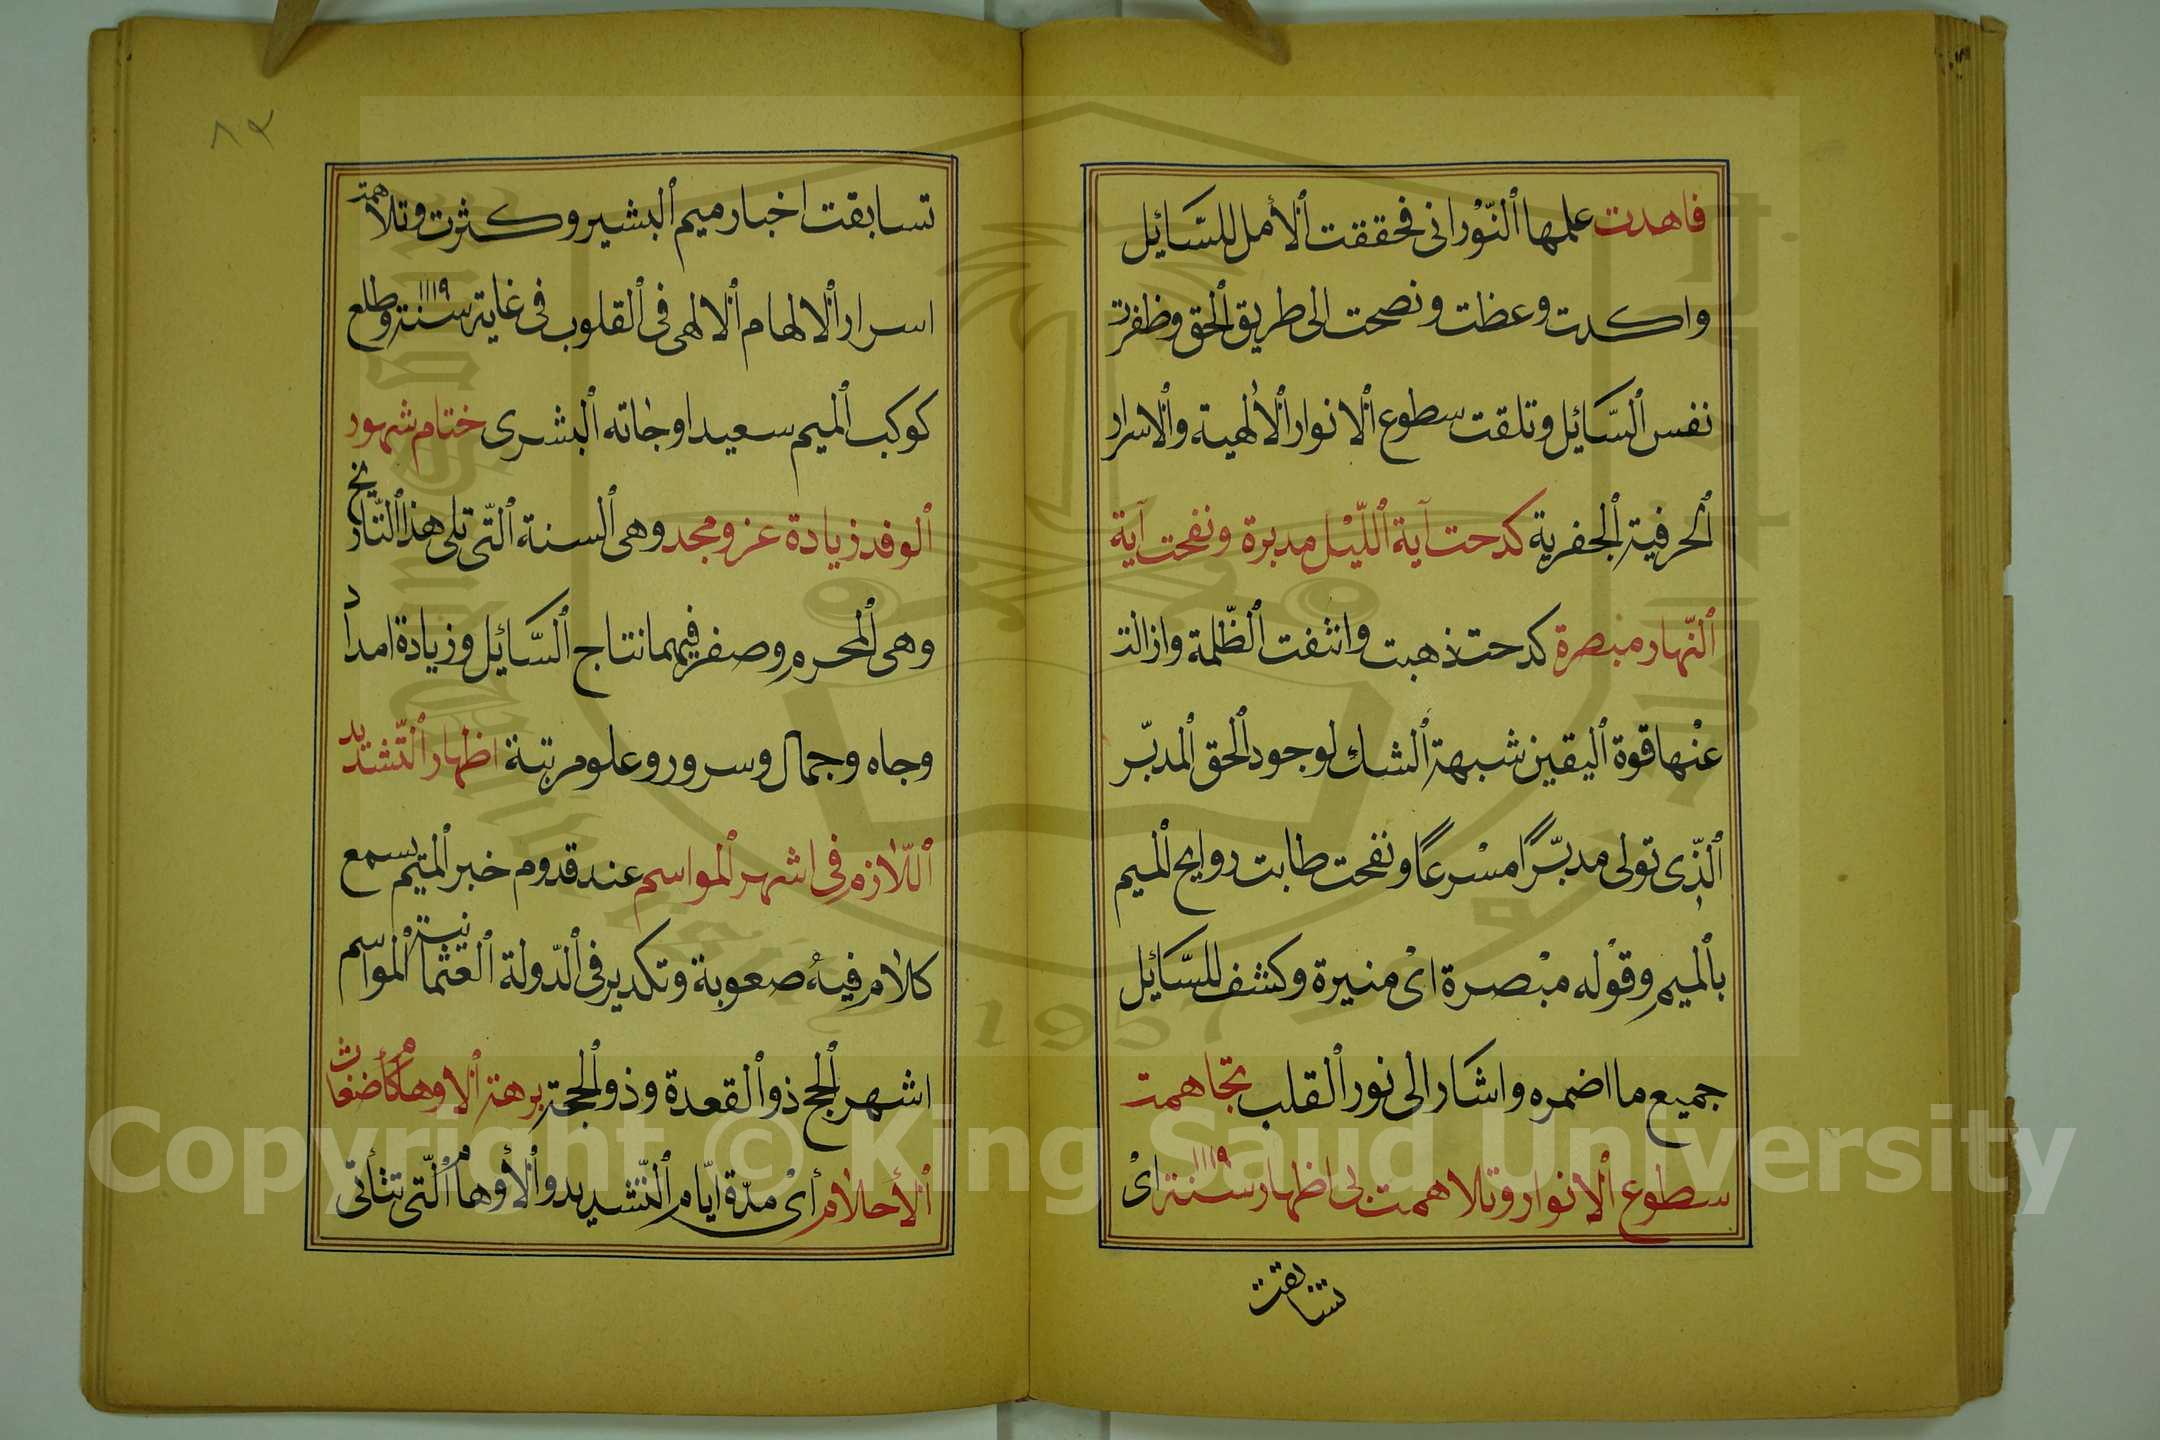 فاهدت علمها النّوراني فحققت الأمل للسّائل
واكدت وعظت ونصحت الى طريق الحق وظفرت
نفس السّائل وتلقت سطوع الانوار الالٰهية والاسرار
الحرفية الجفرية كدحت آية اللّيل مدبرة ونفحت آية
النّهار مبصرة كدحت ذهبت وانتفت الظّلمة وازالت
عنها قوة اليقين شبهة الشك لوجود الحق المدبّر
الّذى تولى مدبّرًا مسْرعًا ونفحت طابت روايح الميم
بالميم وقوْله مبْصرة اىْ منيرة وكشف للسّائل
جميع ما اضمره واشار الى نور القلب تجاهمت
سطوع الانوار وتلاهمت بى اظهار سنة ١١١٩ اىْ
تسابقت
٨٢
تسابقت اخبار ميم البشير وكثرت وتلاهمت
اسرار الالهام الالهى فى القلوب فى غاية سنة ١١١٩ وطلع
كوكب الميم سعيدا وجاته البشرى ختام شهور
الوفد زيادة عز ومجد وهى السنة الّتى تلى هذا التّاريخ
وهى المحرم وصفر فيهما نتاج السّائل وزيادة امداد
وجاه وجمال وسرور وعلو مرتبة اظهار التّشديد
اللّازم فى اشهر المواسم عند قدوم خبر الميم يسمع
كلام فيهْ صعوبة وتكدير فى الدّولة العثمانية المواسم
اشهر الحج ذو القعدة وذو الحجة برهة الاوهام كأضغاث
الأحلام أىْ مدّة ايّام التّشديد والأوهام الّتى تتأتى
Copyright © King Saud University
1957